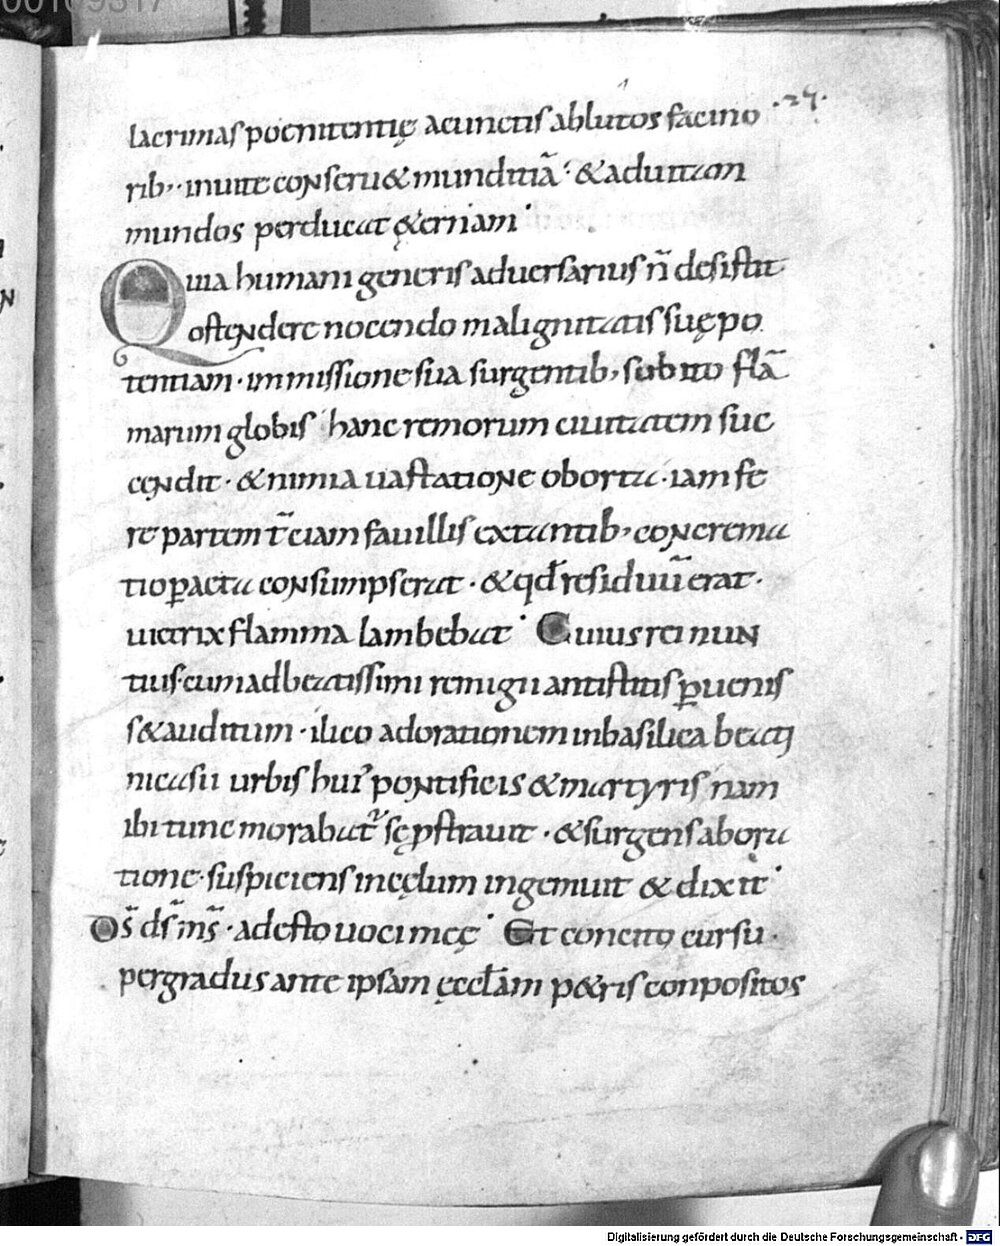 00109317
·27·
lacrimas poenitentię acunctis ablutos facino
rib;· inuite conseru& munditiā· & aduitam
mundos perducat ęternam·
Quia humani generis aduersarius n̄ desistit
ostendere nocendo malignitatis suę po
tentiam· immissione sua surgentib; subito flā
marum globis hanc remorum ciuitatem suc
cendit· & nimia uastatione oborta· iam fe
re partem t̄ciam fauillis extantib; concrema
tio ꝑacta consumpserat· & qd̄ residuū erat·
uictrix flamma lambebat· Cuius rei nun
tius cum ad beatissimi remigii antistitis ꝑuenis
s& auditum· ilico ad orationem in basilica beati
nicasii urbis hui' pontificis & martyris nam
ibi tunc morabat' sę pstrauit· & surgens ab ora
tione· suspiciens in cęlum ingemuit & dixit·
Ds̄ ds̄ ms̄· adesto uoci meę· Et concito cursu·
per gradus ante ipsam ęcclām p&ris conpositos
Digitalisierung gefördert durch die Deutsche Forschungsgemeinschaft - DFG